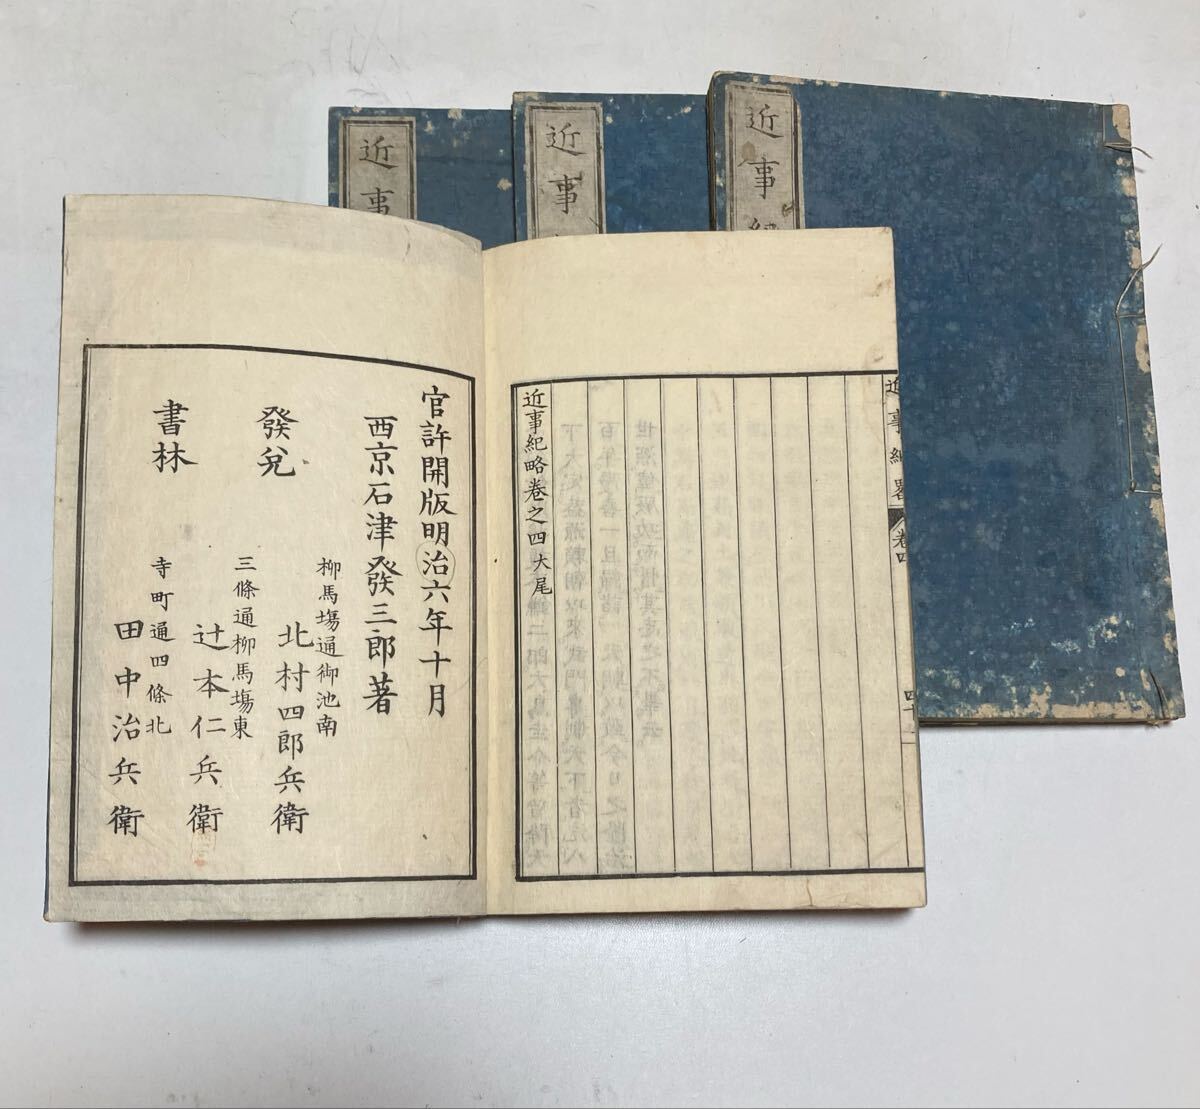 近事
近事
近事紀
近事紀略卷之四大尾
近事紀畧
卷四
官許開版明治六年十月
西京石津發三郎著
發兌
書林
柳馬塲通御池南
北村四郎兵衛
三條通柳馬塲東
辻本仁兵衛
寺町通四條北
田中治兵衛